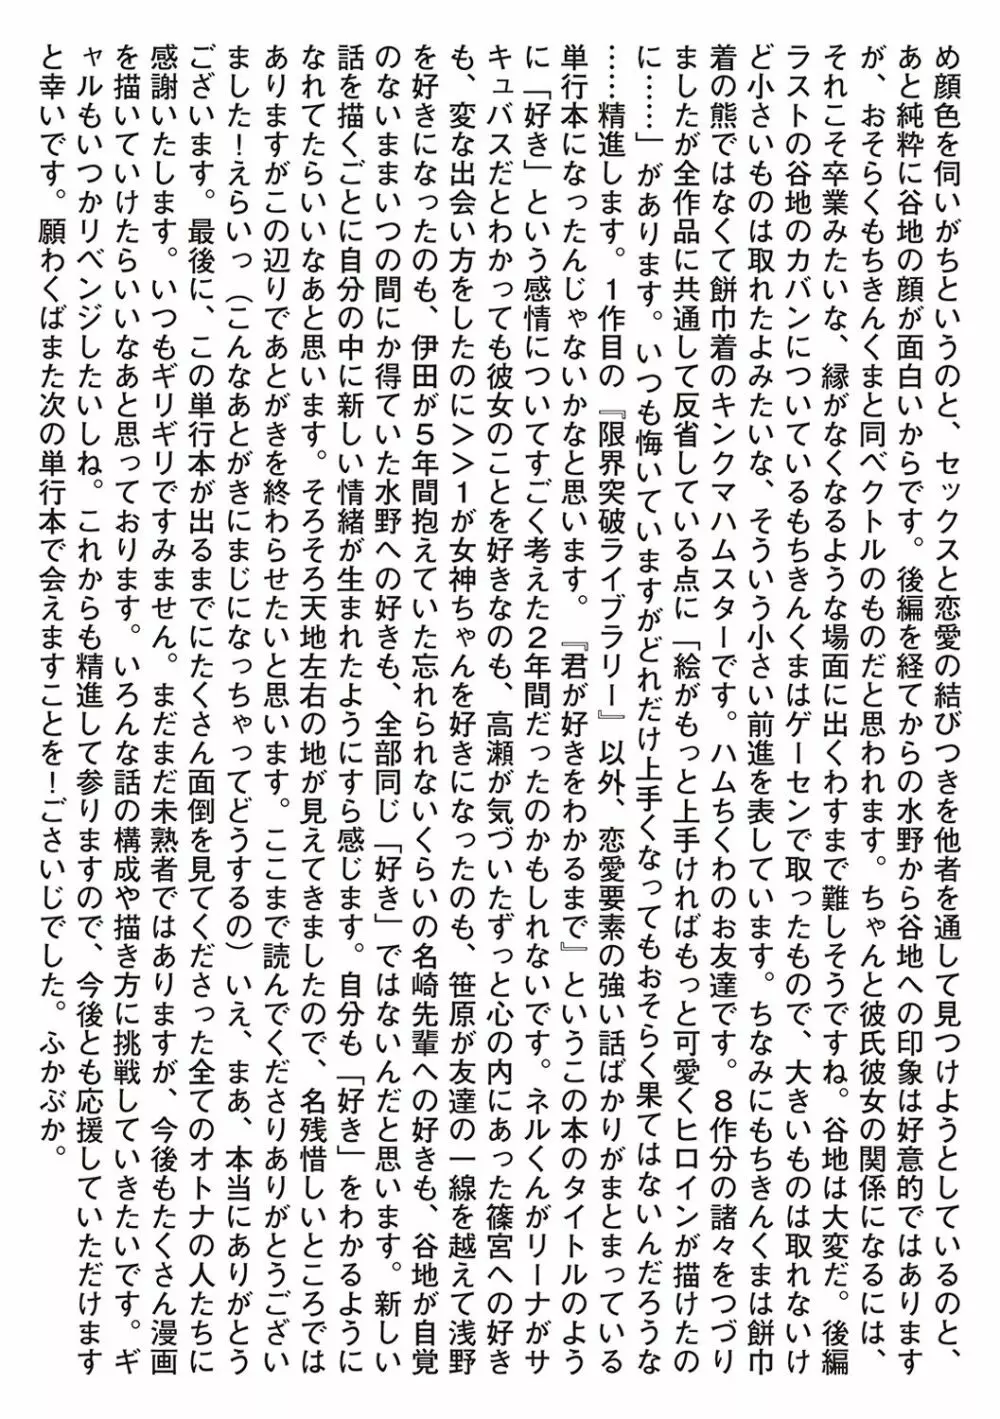 め顔色を伺いがちというのと、セックスと恋愛の結びつきを他者を通して見つけようとしているのと、
あと純粋に谷地の顔が面白いからです。後編を経てからの水野から谷地への印象は好意的ではあります
が、おそらくもちきんくまと同ベクトルのものだと思われます。ちゃんと彼氏彼女の関係になるには、
それこそ卒業みたいな、縁がなくなるような場面に出くわすまで難しそうですね。谷地は大変だ。後編
ラストの谷地のカバンについているもちきんくまはゲーセンで取ったもので、大きいものは取れないけ
ど小さいものは取れたよみたいな、そういう小さい前進を表しています。ちなみにもちきんくまは餅巾
着の熊ではなくて餅巾着のキンクマハムスターです。ハムちくわのお友達です。８作分の諸々をつづり
ましたが全作品に共通して反省している点に「絵がもっと上手ければもっと可愛くヒロインが描けたの
に……」があります。いつも悔いていますがどれだけ上手くなってもおそらく果てはないんだろうな
……精進します。１作目の『限界突破ライブラリー』以外、恋愛要素の強い話ばかりがまとまっている
単行本になったんじゃないかなと思います。『君が好きをわかるまで』というこの本のタイトルのよう
に「好き」という感情についてすごく考えた２年間だったのかもしれないです。ネルくんがリーナがサ
キュバスだとわかっても彼女のことを好きなのも、高瀬が気づいたずっと心の内にあった篠宮への好き
も、変な出会い方をしたのに＞＞１が女神ちゃんを好きになったのも、笹原が友達の一線を越えて浅野
を好きになったのも、伊田が５年間抱えていた忘れられないくらいの名崎先輩への好きも、谷地が自覚
のないままいつの間にか得ていた水野への好きも、全部同じ「好き」ではないんだと思います。新しい
話を描くごとに自分の中に新しい情緒が生まれたようにすら感じます。自分も「好き」をわかるように
なれてたらいいなあと思います。そろそろ天地左右の地が見えてきましたので、名残惜しいところでは
ありますがこの辺りであとがきを終わらせたいと思います。ここまで読んでくださりありがとうござい
ました！えらいっ（こんなあとがきにまじになっちゃってどうするの）いえ、まあ、本当にありがとう
ございます。最後に、この単行本が出るまでにたくさん面倒を見てくださった全てのオトナの人たちに
感謝いたします。いつもギリギリですみません。まだまだ未熟者ではありますが、今後もたくさん漫画
を描いていけたらいいなあと思っております。いろんな話の構成や描き方に挑戦していきたいです。ギ
ャルもいつかリベンジしたいしね。これからも精進して参りますので、今後とも応援していただけます
と幸いです。願わくばまた次の単行本で会えますことを！ごさいじでした。ふかぶか。